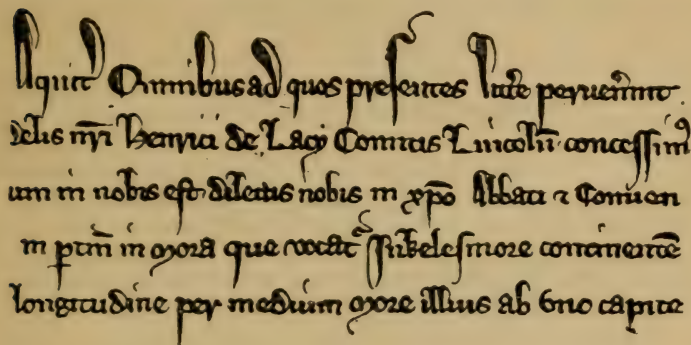 Aquit̄ Omnibus ad quos presentes litt̄e peruen̄int
delis nr̄i Henrici de Lacy Comitis Lincoln̄ concessim⁹
um in nobis est dilectis nobis in xp̄o Abbati ⁊ Conuen
in ꝑtm̄ in mora que vocat᷑ Inkelesmore continentē
longitudine per medium more illius ab vno capite